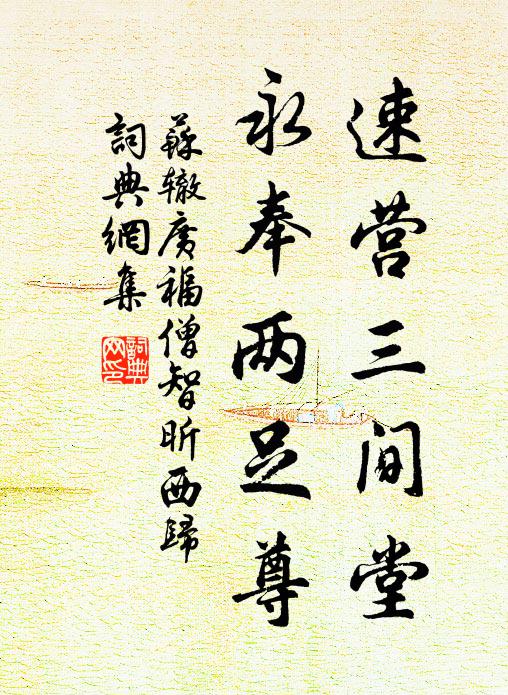 速营三间堂
永奉两足尊
蘇辙廣福僧智昕西歸
詞典網集
詞典
网印